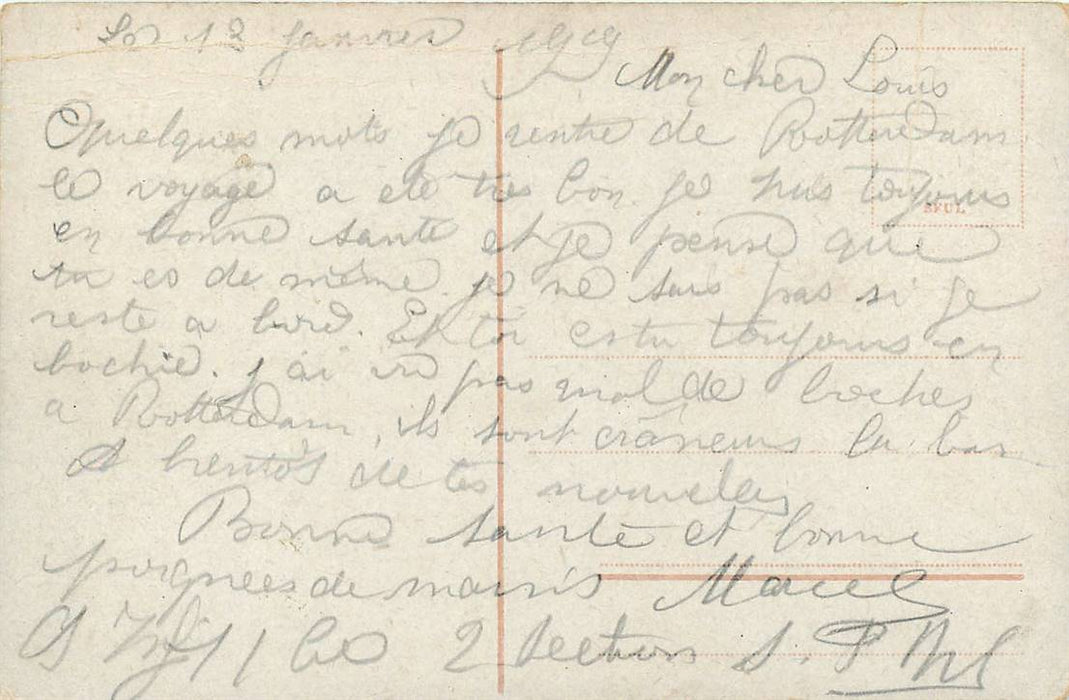 13 janvier 1919
Mon cher Louis
Quelques mots je rentre de Rotterdam
le voyage a ete tres bon. je suis toujours
SEUL
en bonne sante et je pense que
tu es de même. je ne sais pas si je
reste a bord. Et toi es tu toujours en
bochie. j ai vu pas mal de boches
a Rotterdam, ils sont crâneurs la bas
A bentôs de tes nouvelles
Bonne sante et bonne
poignees de mains Macel
2 section S. P